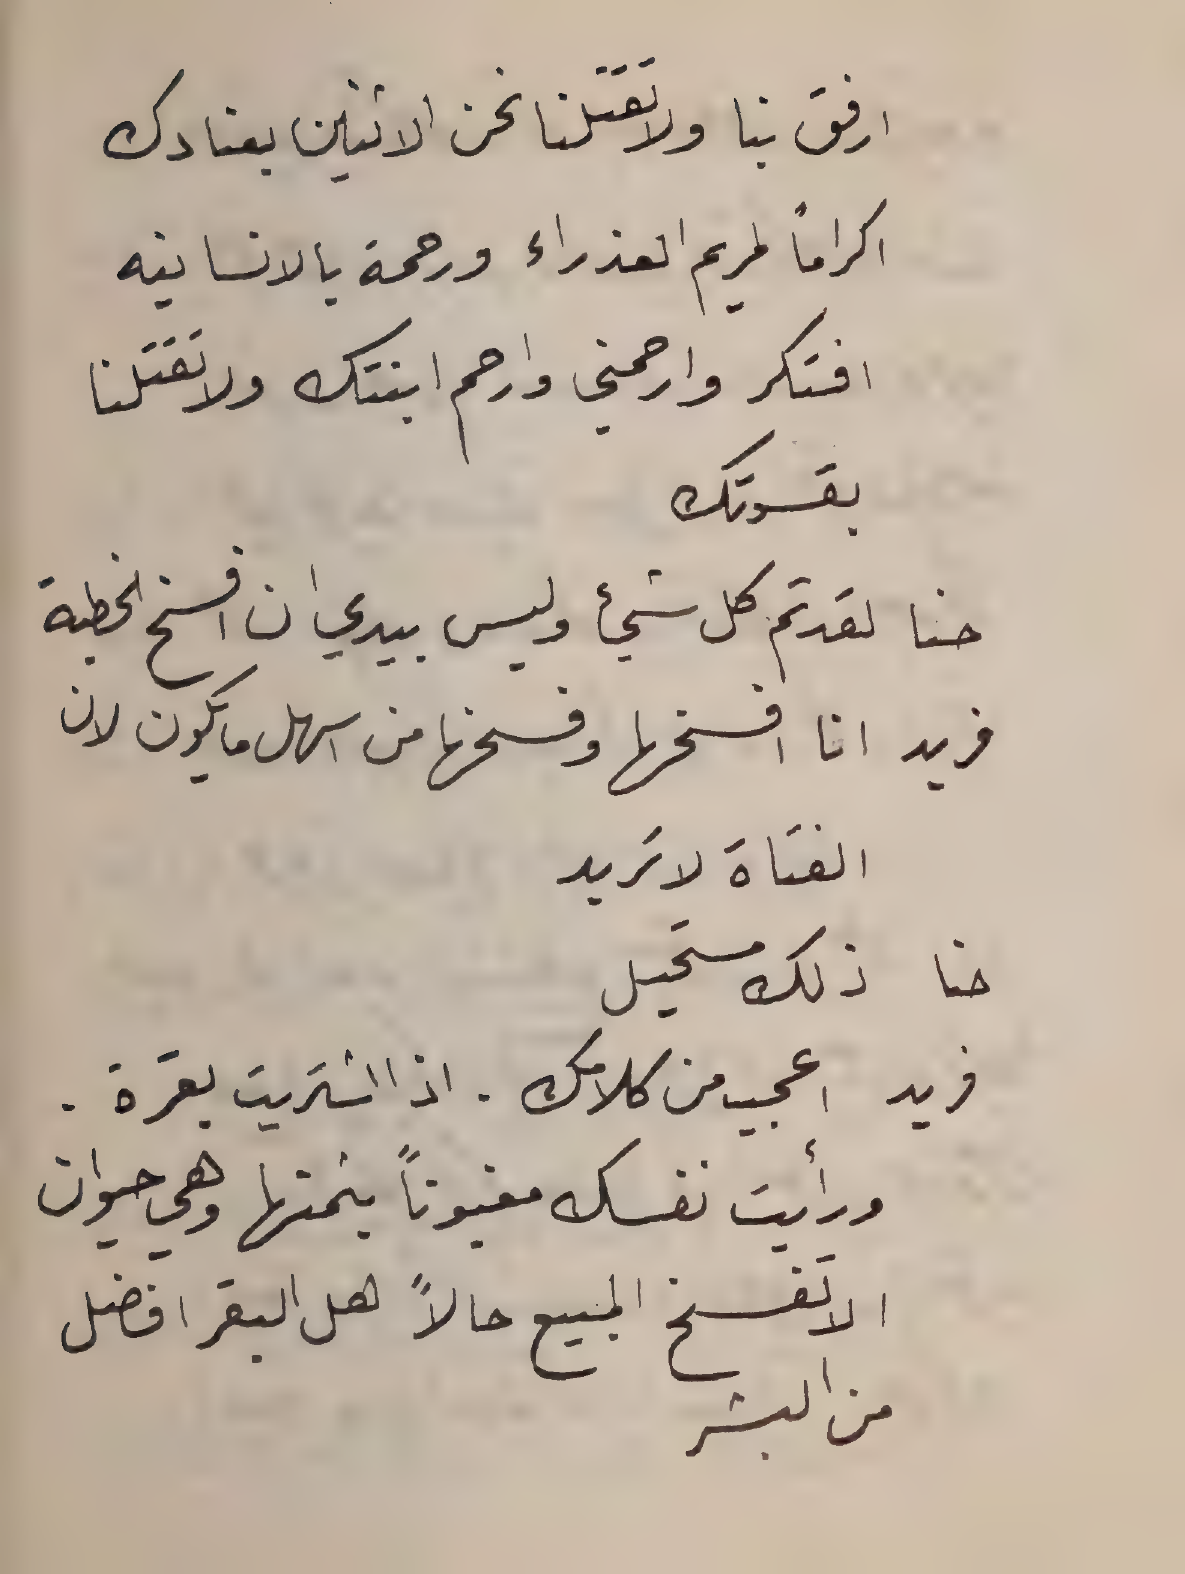 ارفق بنا ولا تقتلنا نحن الاثنين بعنادك
اكراماً لمريم العذراء ورحمة بالانسانيه
افتكر وارحمني وارحم ابنتك ولا تقتلنا
بقسوتك
حنا لقد تم كل شيئ وليس بيدي ان افسخ الخطبة
فريد انا افسخها وفسخها من اسهل ما يكون لان
الفتاة لا تريد
حنا ذلك مستحيل
فريد اعجب من كلامك . اذا اشتريت بقرة .
ورأيت نفسك مغبوناً بثمنها وهي حيوان
الا تفسخ المبيع حالاً هل البقر افضل
من البشر